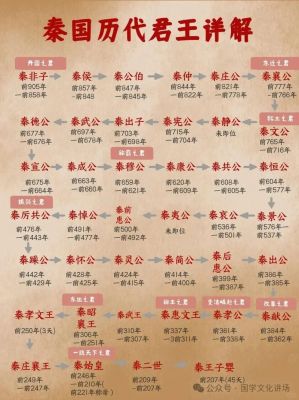 秦国历代君王详解
开国之君
东迁之君
秦非子 秦侯 秦公伯 秦仲 秦庄公 秦襄公
前905年 前857年 前847年 前844年 前821年 前777年
—前858年 —前848 —前845年 —前822年 —前778年 —前766年
拓土之君
秦德公 秦武公 秦出子 秦宪公 秦静公 秦文公
前677年 前697年 前703年 前715年 未即位 前765年
—前676年 —前678年 —前698年 —前704年 —前716年
称霸之君
秦宣公 秦成公 秦穆公 秦康公 秦共公 秦桓公
前675年 前663年 前659年 前620年 前608年 前604年
—前664年 —前660年 —前621年 —前609年 —前605年 —前577年
秦厉共公 秦悼公 秦前惠公 秦夷公 秦哀公 秦景公
前476年 前491年 前500年 未即位 前536年 前576年
—前443年 —前477年 —前492年 —前501年 —前537年
秦躁公 秦怀公 秦灵公 秦简公 秦后惠公 秦出公
前442年 前428年 前424年 前414年 前399年 前386年
—前429年 —前425年 —前415年 —前400年 —前387年 —前385年
变法崛起之君
改革之君
秦孝文王 秦昭襄王 秦武王 秦惠文王 秦孝公 秦献公
前250年(3天) 前306年 前310年 前337年 前361年 前384年
—前251年 —前307年 —前311年 —前338年 —前362年
一统天下之君
秦庄襄王 秦始皇 秦二世 秦王子婴
前249年 前246年 前209年 前207年(45天)
—前247年 —前210年 —前207年
公众号·国学文化讲场